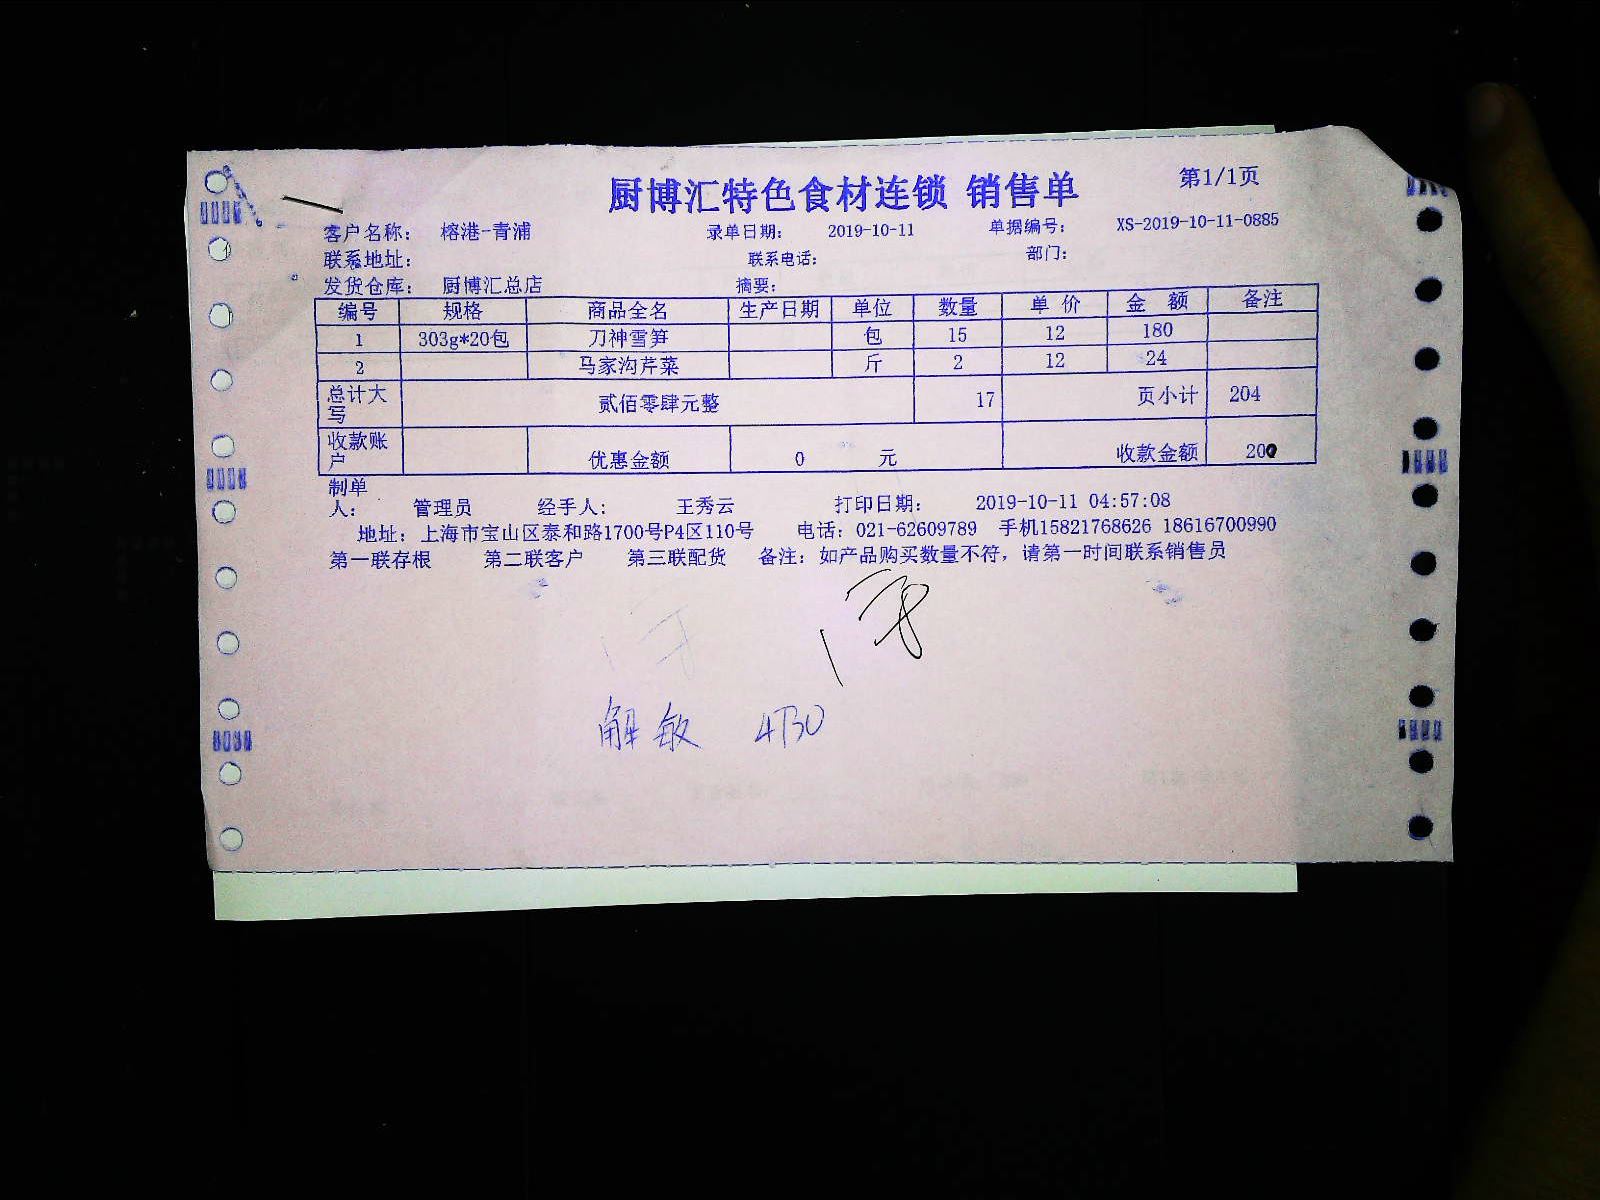 厨博汇特色食材连锁 销售单 第1/1页
客户名称： 榕港-青浦 录单日期： 2019-10-11 单据编号： XS-2019-10-11-0885
联系地址： 联系电话： 部门：
发货仓库： 厨博汇总店 摘要：
编号 规格 商品全名 生产日期 单位 数量 单 价 金 额 备注
1 303g*20包 刀神雪笋 包 15 12 180
2 马家沟芹菜 斤 2 12 24
总计大写 贰佰零肆元整 17 页小计 204
收款账户 优惠金额 0 元 收款金额 200
制单人： 管理员 经手人： 王秀云 打印日期： 2019-10-11 04:57:08
地址：上海市宝山区泰和路1700号P4区110号 电话：021-62609789 手机15821768626 18616700990
第一联存根 第二联客户 第三联配货 备注：如产品购买数量不符，请第一时间联系销售员
解敏